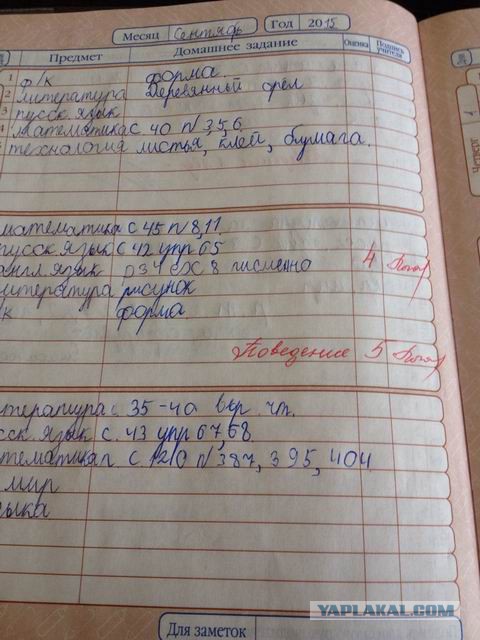 Месяц Сентябрь Год 2015
Предмет Домашнее задание Оценка Подпись учителя
1 ф/к форма.
2 литература Деревянный орёл
3 русск. язык
4 математика с 40 п 3,5,6.
технология листья, клей, бумага.
математика с 45 п 8,11.
русск. язык с 42 упр 65
англ. язык р34 ex 8 писменно 4
литература рисунок
/к форма
Поведение 5
итература с 35-40 выр. чт.
сск. язык с. 43 упр 67,68.
тематика с 120 п 387, 395, 404
мир
зыка
Для заметок
Четверг
YAPLAKAL.COM